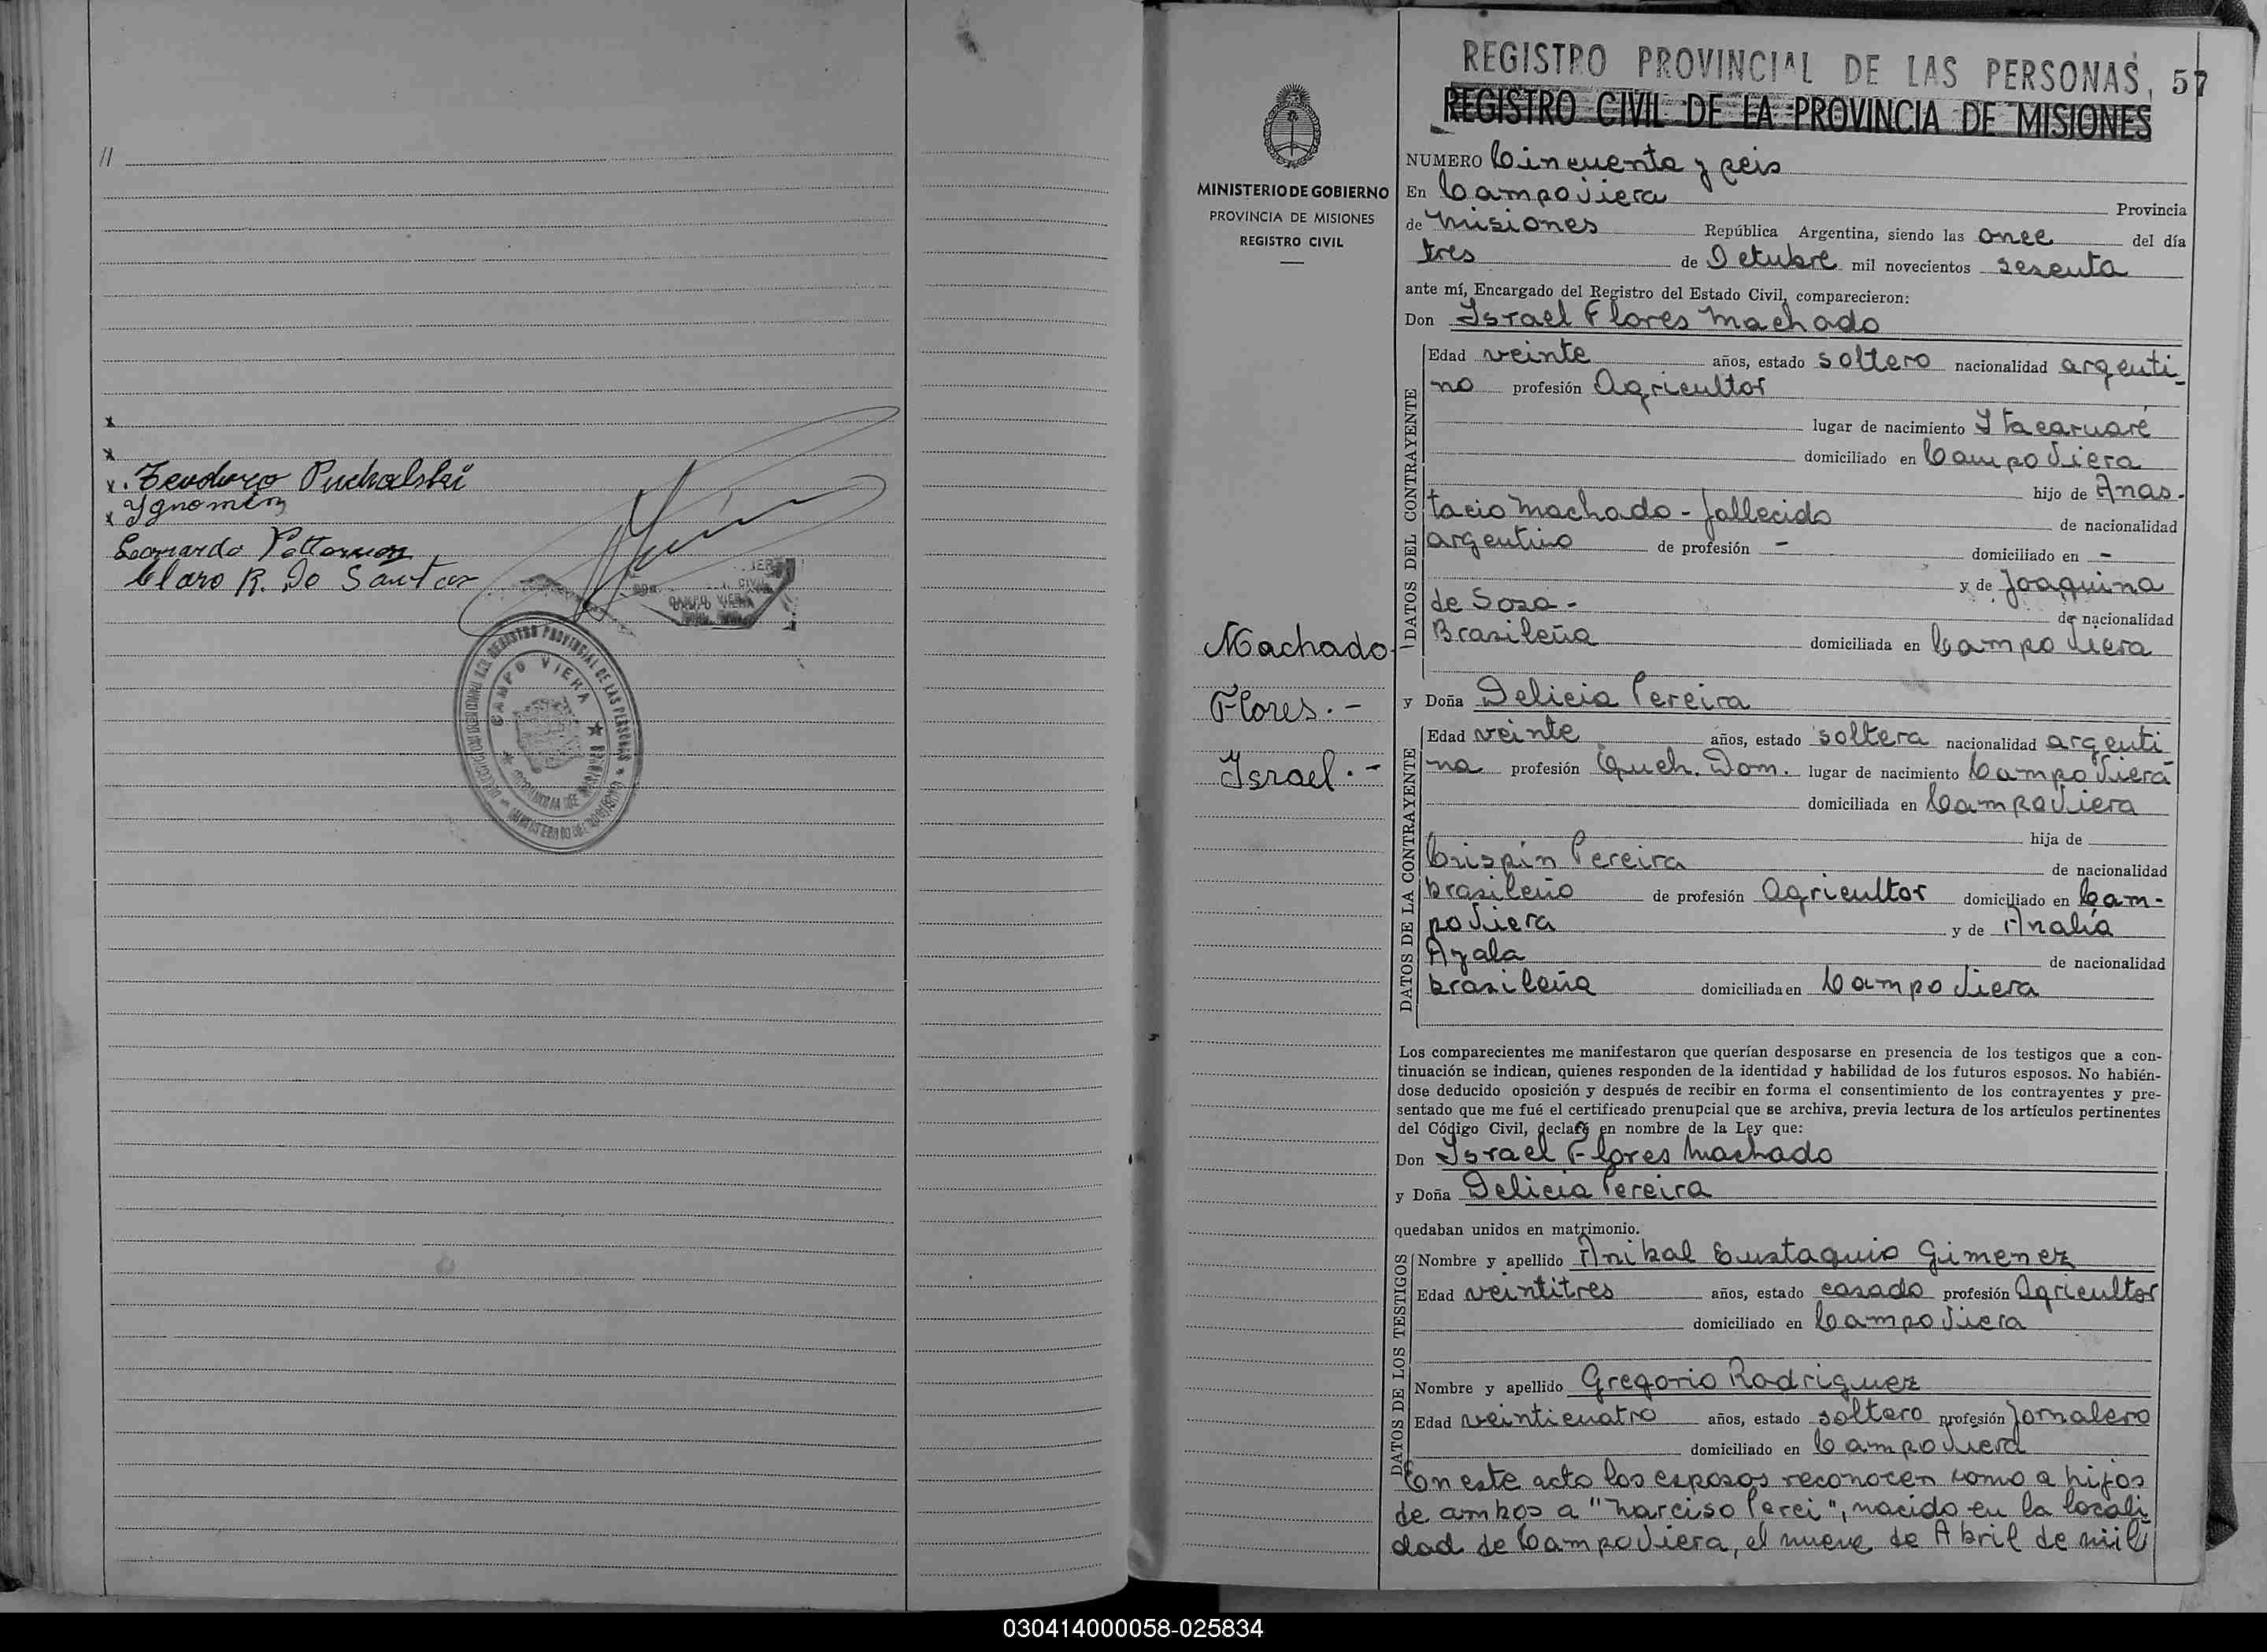 //
x
x
x. Teodoro Puchalski
x Ygnomin
Leonardo
Claro R. Do Santos
CAMPO VIERA
CAMPO VIERA
REGISTRO PROVINCIAL DE LAS PERSONAS
REGISTRO PROVINCIAL DE LAS PERSONAS, 57
REGISTRO CIVIL DE LA PROVINCIA DE MISIONES
MINISTERIO DE GOBIERNO
PROVINCIA DE MISIONES
REGISTRO CIVIL
Machado
Flores.-
Israel.-
NUMERO Cincuenta y seis
En Campo Viera Provincia
de Misiones República Argentina, siendo las once del día
tres de Octubre mil novecientos sesenta
ante mí, Encargado del Registro del Estado Civil, comparecieron:
Don Israel Flores Machado
DATOS DEL CONTRAYENTE
Edad veinte años, estado soltero nacionalidad argenti-
no profesión Agricultor
lugar de nacimiento Itacaruaré
domiciliado en Campo Viera
hijo de Anas-
tacio Machado - fallecido de nacionalidad
argentino de profesión - domiciliado en -
y de Joaquina
de Sosa - de nacionalidad
Brasileña domiciliada en Campo Viera
y Doña Delicia Pereira
DATOS DE LA CONTRAYENTE
Edad veinte años, estado soltera nacionalidad argenti
na profesión Queh. Dom. lugar de nacimiento Campo Viera
domiciliada en Campo Viera
hija de
Crispin Pereira de nacionalidad
brasileño de profesión Agricultor domiciliado en Cam-
po Viera y de Analía
Ayala de nacionalidad
brasileña domiciliada en Campo Viera
Los comparecientes me manifestaron que querían desposarse en presencia de los testigos que a con-
tinuación se indican, quienes responden de la identidad y habilidad de los futuros esposos. No habién-
dose deducido oposición y después de recibir en forma el consentimiento de los contrayentes y pre-
sentado que me fué el certificado prenupcial que se archiva, previa lectura de los artículos pertinentes
del Código Civil, declaré en nombre de la Ley que:
Don Israel Flores Machado
y Doña Delicia Pereira
quedaban unidos en matrimonio.
DATOS DE LOS TESTIGOS
Nombre y apellido Anibal Eustaquio Gimenez
Edad veintitres años, estado casado profesión Agricultor
domiciliado en Campo Viera
Nombre y apellido Gregorio Rodriguez
Edad veinticuatro años, estado soltero profesión Jornalero
domiciliado en Campo Viera
En este acto los esposos reconocen como a hijos
de ambos a "Narciso Perci", nacido en la locali
dad de Campo Viera, el nueve de Abril de mil
030414000058-025834